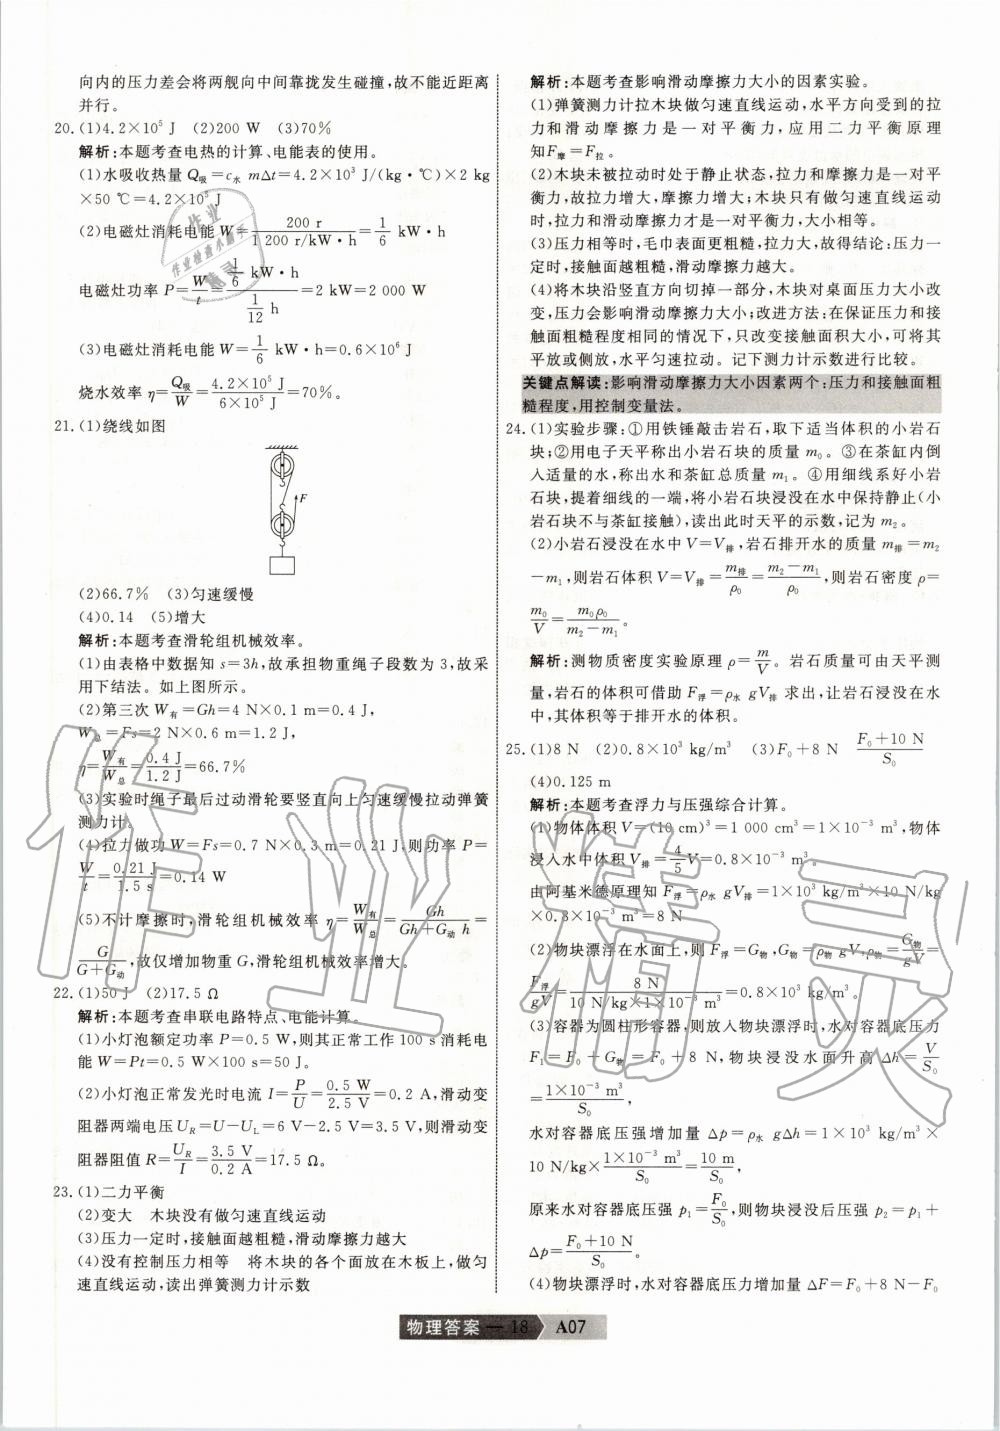 向内的压力差会将两舰向中间靠拢发生碰撞,故不能近距离
并行。
20.(1)4.2×10⁵ J (2)200 W (3)70%
解析:本题考查电热的计算、电能表的使用。
(1)水吸收热量Q吸=c水 mΔt=4.2×10³ J/(kg·℃)×2 kg
×50 ℃=4.2×10⁵ J
(2)电磁灶消耗电能W=200 r/1 200 r/kW·h=1/6 kW·h
电磁灶功率 P=W/t=1/6 kW·h/1/12 h=2 kW=2 000 W
(3)电磁灶消耗电能 W=1/6 kW·h=0.6×10⁶ J
烧水效率 η=Q吸/W=4.2×10⁵ J/6×10⁵ J=70%。
21.(1)绕线如图
F
(2)66.7% (3)匀速缓慢
(4)0.14 (5)增大
解析:本题考查滑轮组机械效率。
(1)由表格中数据知 s=3h,故承担物重绳子段数为3,故采
用下结法。如上图所示。
(2)第三次W有=Gh=4 N×0.1 m=0.4 J,
W总=Fs=2 N×0.6 m=1.2 J,
η=W有/W总=0.4 J/1.2 J=66.7%
(3)实验时绳子最后过动滑轮要竖直向上匀速缓慢拉动弹簧
测力计。
(4)拉力做功W=Fs=0.7 N×0.3 m=0.21 J,则功率 P=
W/t=0.21 J/1.5 s=0.14 W
(5)不计摩擦时,滑轮组机械效率 η=W有/W总=Gh/Gh+G动 h=
G/G+G动,故仅增加物重G,滑轮组机械效率增大。
22.(1)50 J (2)17.5 Ω
解析:本题考查串联电路特点、电能计算。
(1)小灯泡额定功率 P=0.5 W,则其正常工作 100 s消耗电
能 W=Pt=0.5 W×100 s=50 J。
(2)小灯泡正常发光时电流 I=P/U=0.5 W/2.5 V=0.2 A,滑动变
阻器两端电压U_R=U−U_L=6 V−2.5 V=3.5 V,则滑动变
阻器阻值 R=U_R/I=3.5 V/0.2 A=17.5 Ω。
23.(1)二力平衡
(2)变大 木块没有做匀速直线运动
(3)压力一定时,接触面越粗糙,滑动摩擦力越大
(4)没有控制压力相等 将木块的各个面放在木板上,做匀
速直线运动,读出弹簧测力计示数
解析:本题考查影响滑动摩擦力大小的因素实验。
(1)弹簧测力计拉木块做匀速直线运动,水平方向受到的拉
力和滑动摩擦力是一对平衡力,应用二力平衡原理
知F摩=F拉。
(2)木块未被拉动时处于静止状态,拉力和摩擦力是一对平
衡力,故拉力增大,摩擦力增大;木块只有做匀速直线运动
时,拉力和滑动摩擦力才是一对平衡力,大小相等。
(3)压力相等时,毛巾表面更粗糙,拉力大,故得结论:压力一
定时,接触面越粗糙,滑动摩擦力越大。
(4)将木块沿竖直方向切掉一部分,木块对桌面压力大小改
变,压力会影响滑动摩擦力大小;改进方法:在保证压力和接
触面粗糙程度相同的情况下,只改变接触面积大小,可将其
平放或侧放,水平匀速拉动。记下测力计示数进行比较。
关键点解读:影响滑动摩擦力大小因素两个:压力和接触面粗
糙程度,用控制变量法。
24.(1)实验步骤:①用铁锤敲击岩石,取下适当体积的小岩石
块;②用电子天平称出小岩石块的质量 m₀。③在茶缸内倒
入适量的水,称出水和茶缸总质量 m₁。④用细线系好小岩
石块,提着细线的一端,将小岩石块浸没在水中保持静止(小
岩石块不与茶缸接触),读出此时天平的示数,记为 m₂。
(2)小岩石浸没在水中V=V排,岩石排开水的质量 m排=m₂
−m₁,则岩石体积 V=V排=m排/ρ₀=m₂−m₁/ρ₀,则岩石密度 ρ=
m₀/V=m₀ρ₀/m₂−m₁。
解析:测物质密度实验原理 ρ=m/V。岩石质量可由天平测
量,岩石的体积可借助 F浮=ρ水 gV排 求出,让岩石浸没在水
中,其体积等于排开水的体积。
25.(1)8 N (2)0.8×10³ kg/m³ (3)F₀+8 N F₀+10 N/S₀
(4)0.125 m
解析:本题考查浮力与压强综合计算。
(1)物体体积V=(10 cm)³=1 000 cm³=1×10⁻³ m³,物体
浸入水中体积V排=4/5V=0.8×10⁻³ m³。
由阿基米德原理知 F浮=ρ水 gV排=1×10³ kg/m³×10 N/kg
×0.8×10⁻³ m³=8 N
(2)物块漂浮在水面上,则F浮=G物,G物=ρ物 gV,ρ物=G物/gV=
F浮/gV=8 N/10 N/kg×1×10⁻³ m³=0.8×10³ kg/m³。
(3)容器为圆柱形容器,则放入物块漂浮时,水对容器底压力
F₁=F₀+G物=F₀+8 N,物块浸没水面升高 Δh=V/S₀
=1×10⁻³ m³/S₀,
水对容器底压强增加量 Δp=ρ水 gΔh=1×10³ kg/m³×
10 N/kg×1×10⁻³ m³/S₀=10 m/S₀,
原来水对容器底压强 p₁=F₀/S₀,则物块浸没后压强 p₂=p₁+
Δp=F₀+10 N/S₀。
(4)物块漂浮时,水对容器底压力增加量 ΔF=F₀+8 N−F₀
物理答案 — 18 A07
作业精灵
作业
作业检查小助手